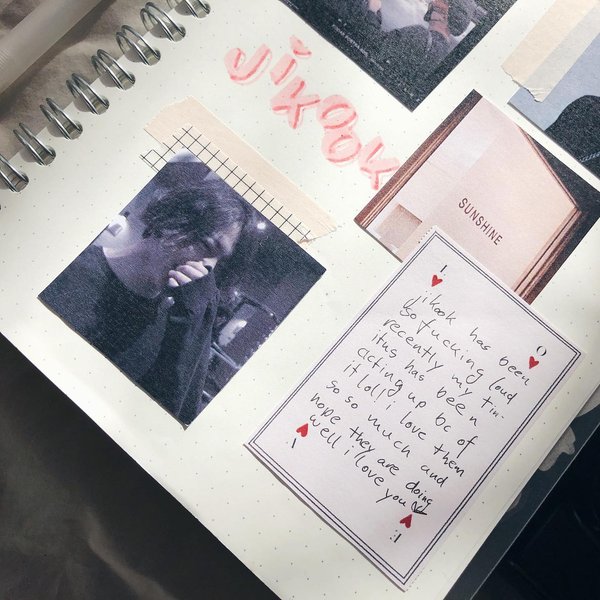 JiKOOK
SUNSHINE
1
O
jikook has been
so fucking loud
recently my tin-
itus has been
acting up bc of
it lol! i love them
so so much and
hope they are doing
well i love you
1